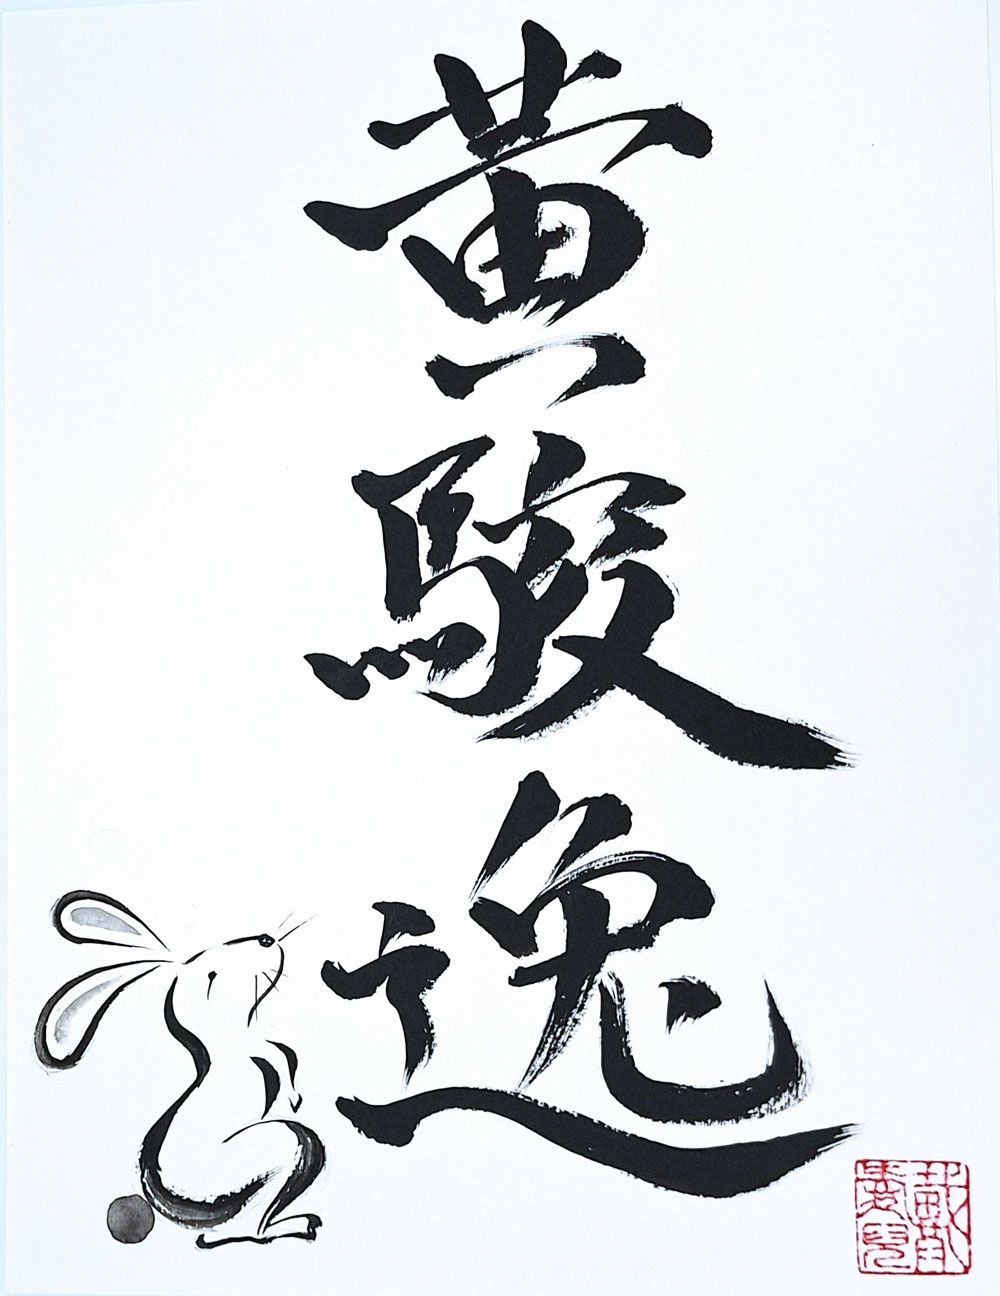 黄駿逸